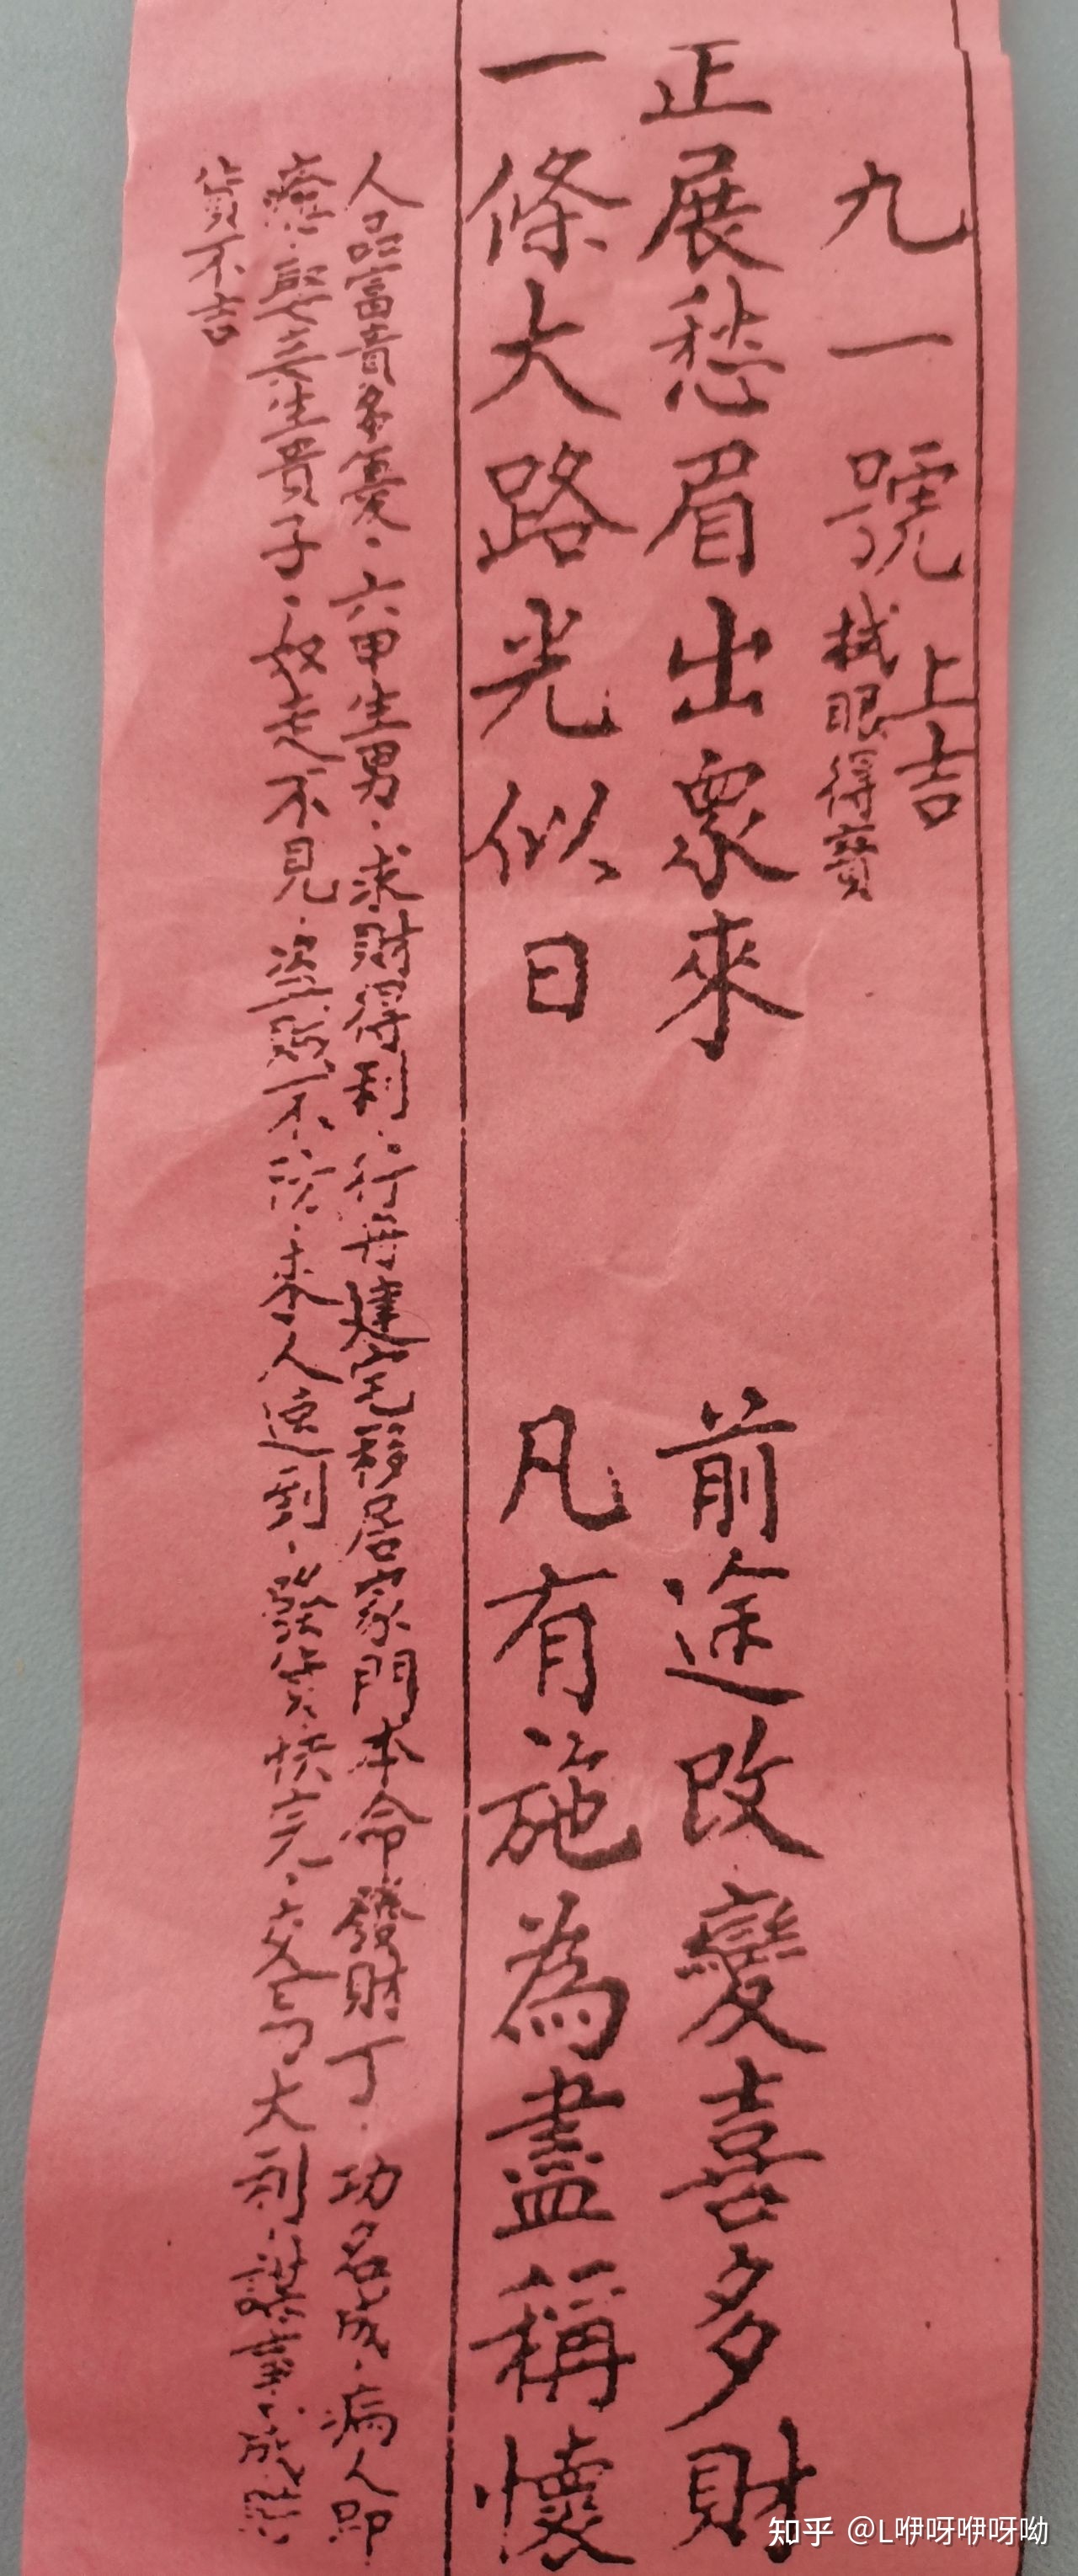 九一號 上吉
拭眼得寶
正展愁眉出眾來 前途改變喜多財
一條大路光似日 凡有施為盡稱懷
人品富貴多憂．六甲生男．求財得利．行舟建宅移居家門本命發財丁．功名成．病人即
痊．娶妻生貴子．奴走不見．盜賊不�．來人速到．發貨快完．交易大利．謀事成
貨不吉
知乎 @L咿呀咿呀呦